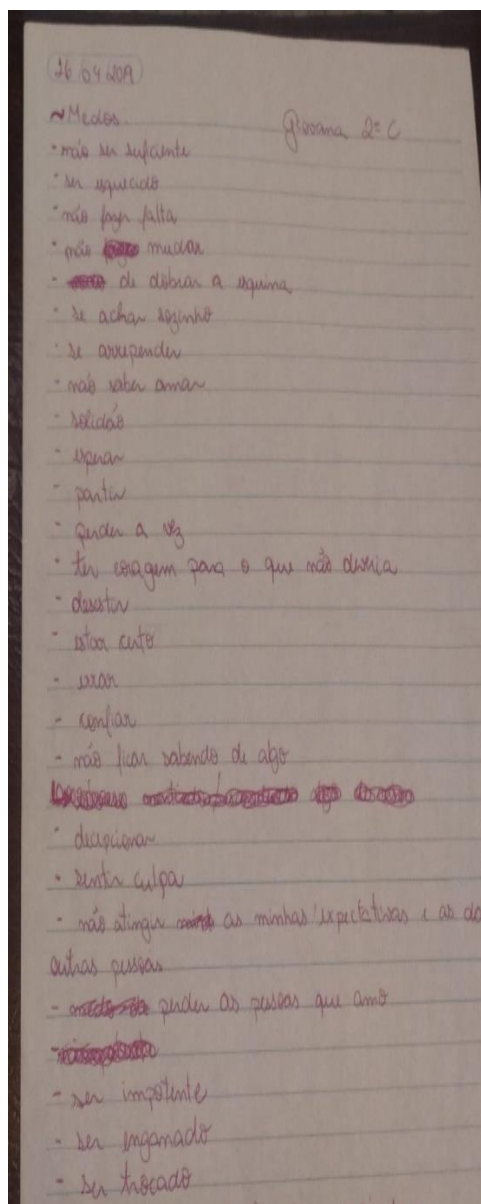 26 04 2019
~Medos. Giovana 2º C
- não ser suficiente
- ser esquecido
- não fazer falta
- não mudar
- de dobrar a esquina
- se achar sozinho
- se arrepender
- não saber amar
- solidão
- esperar
- partir
- perder a vez
- ter coragem para o que não devia
- desistir
- estar certo
- errar
- confiar
- não ficar sabendo de algo
- decepcionar
- sentir culpa
- não atingir as minhas expectativas e as
outras pessoas
- perder as pessoas que amo
- ser impotente
- ser enganado
- ser trocado